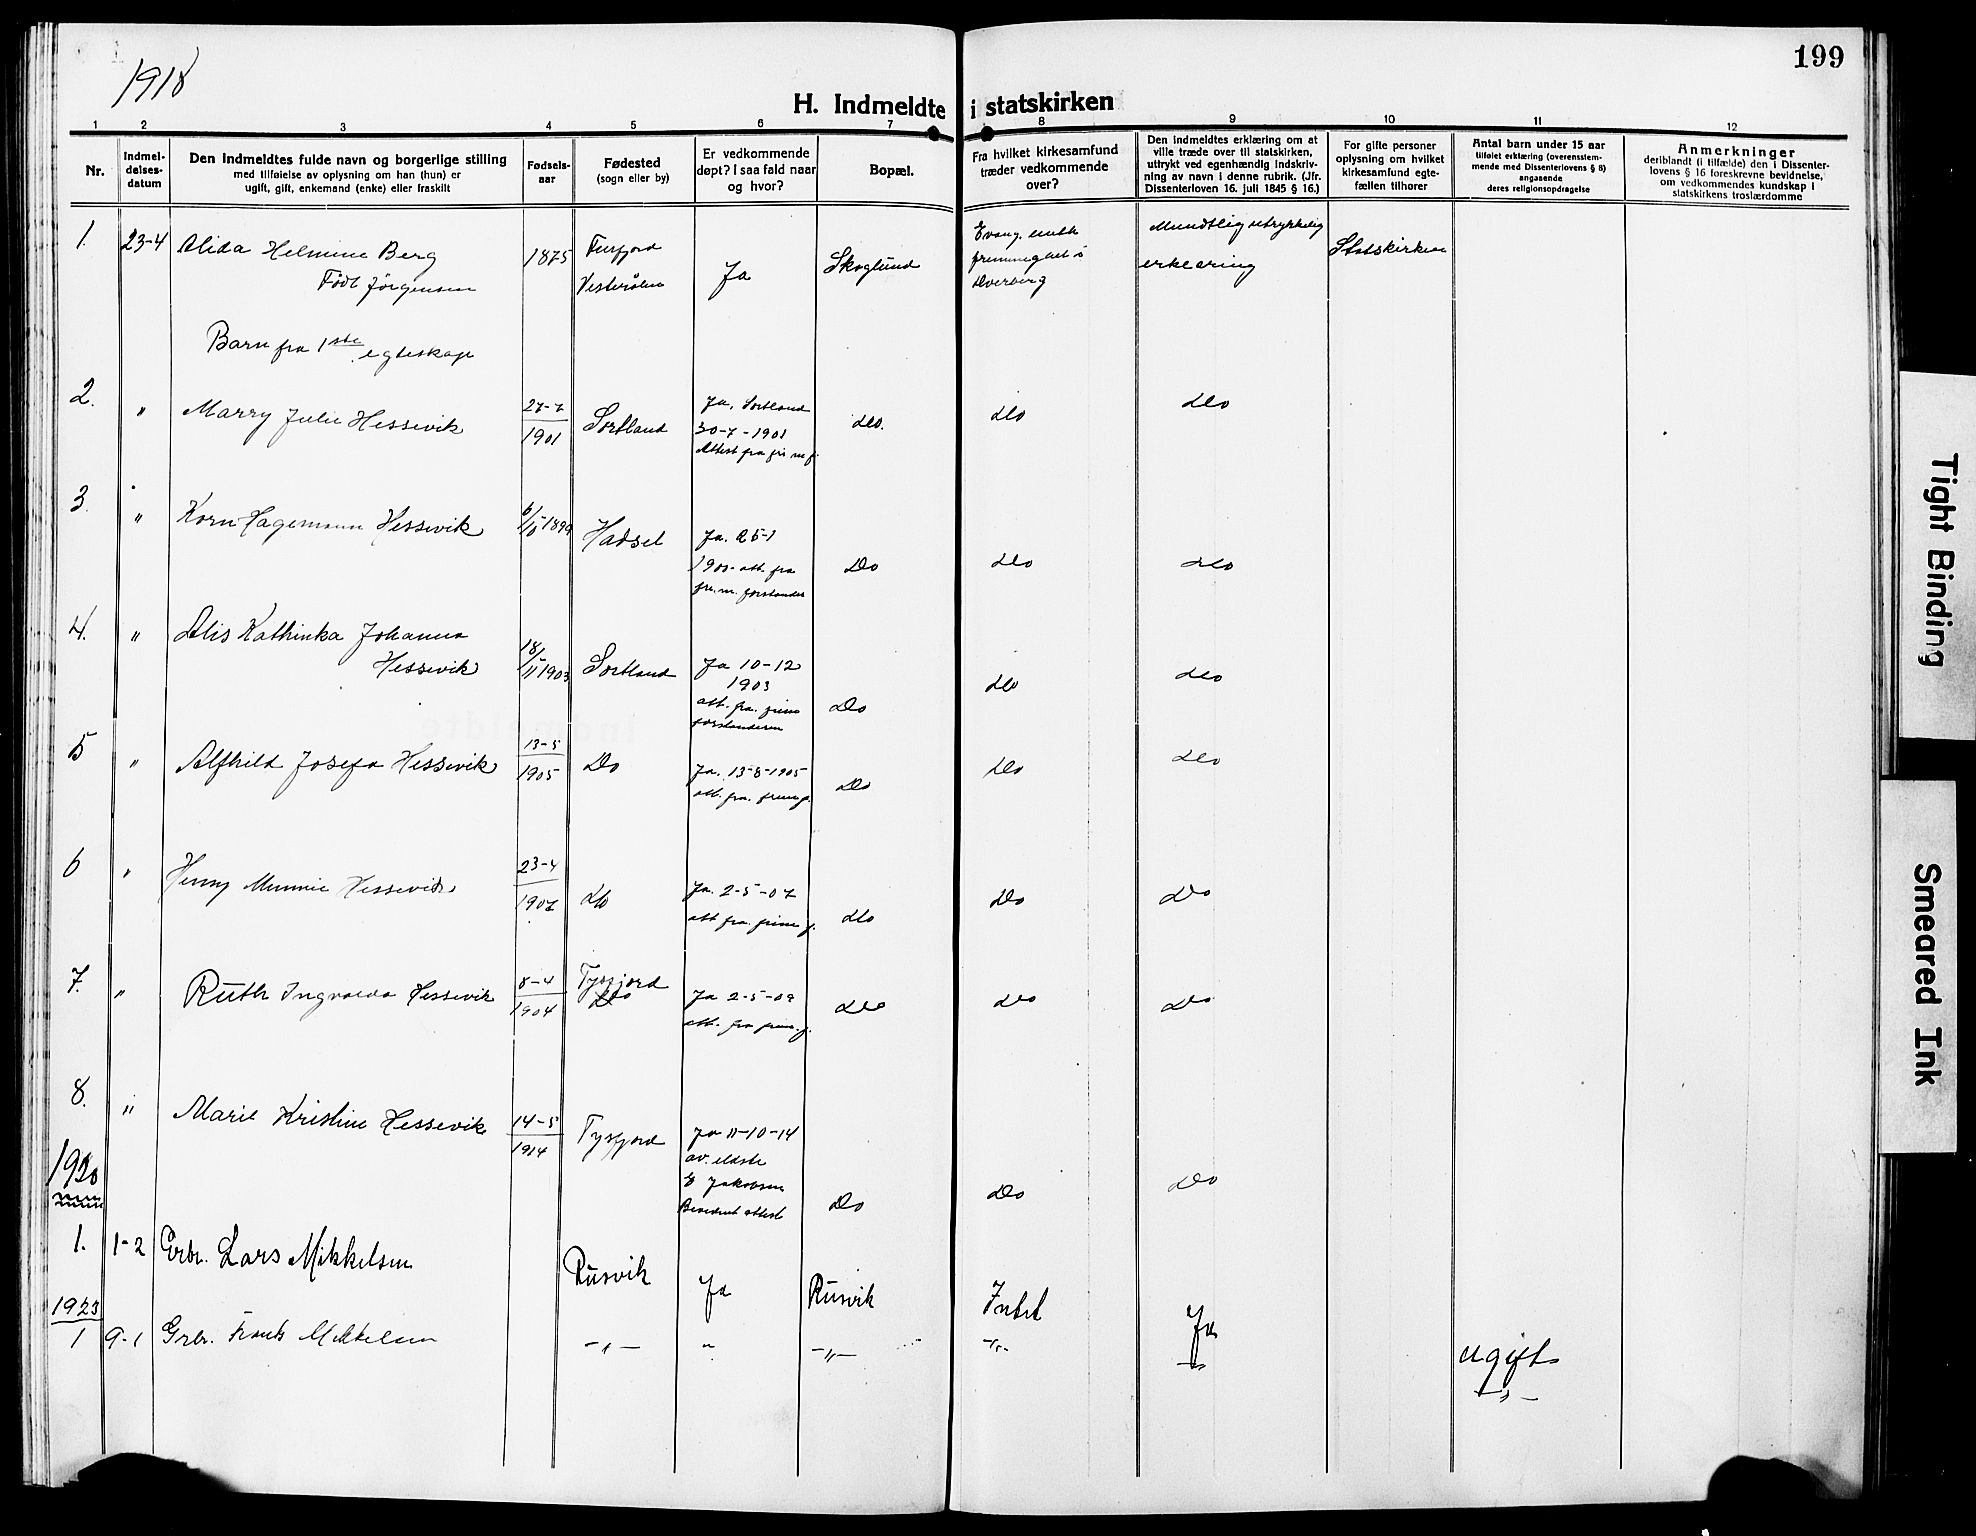 1918
199
H. Indmeldte i statskirken
1 2 3 4 5 6 7 8 9 10 11 12
Nr.
Indmel-
delses-
datum
Den Indmeldtes fulde navn og borgerlige stilling
med tilføielse av oplysning om han (hun) er
ugift, gift, enkemand (enke) eller fraskilt
Fødsels-
aar
Fødested
(sogn eller by)
Er vedkommende
døpt? I saa fald naar
og hvor?
Bopæl.
Fra hvilket kirkesamfund
træder vedkommende
over?
Den indmeldtes erklæring om at
ville træde over til statskirken,
uttrykt ved egenhændig indskriv-
ning av navn i denne rubrik. (Jfr.
Dissenterloven 16. juli 1845 § 16.)
For gifte personer
oplysning om hvilket
kirkesamfund egte-
fællen tilhører
Antal barn under 15 aar
tilføiet erklæring (overensstem-
mende med Dissenterlovens § 8)
angaaende
deres religionsopdragelse
Anmerkninger
deriblandt (i tilfælde) den i Dissenter-
lovens § 16 foreskrevne bevidnelse,
om vedkommendes kundskap i
statskirkens troslærdomme
1. 23-4 Alida Helmine Berg 1875
Født Jörgensen
Vesterålen
Ja
Skoglund
Evang. luth
frimenighet i
Dverberg
Mundtlig uttrykkelig
erklæring
Statskirken
Barn fra 1ste egteskap
2. " Marry Julie Hessevik 27-7 1901 Sortland
Ja, Sortland
30-7-1901
Attest fra
do. do do
3. " Korn Hagemann Hessevik 1899 Hadsel
Ja. 25-1
1900 att. fra
fri.m. forstander
Do do do
4. " Alis Kathinka Johanna
Hessevik 18/11 1903 Sortland
Ja 10-12
1903
att. fra
forstanderen
Do do do
5 " Alfhild Josefa Hessevik 13-5 1905 Do
Ja. 13-8-1905
att. fra
Do do do
6 " Henny Minnie Hessevik 23-4 1907 do
Ja. 2-5-07
att fra
do Do Do
7. " Ruth Ingvalda Hessevik 8-4 1904 Tysfjord
do
Ja 2-5-09
att. fra
do do Do
8. " Marie Kristine Hessevik 14-5 1914 Tysfjord
Ja 11-10-14
av. eldste
E Jakobsen
attest
Do Do do
1920
1. 1-2 Grbr. Lars Mikkelsen Rusvik Ja Rusvik Intet Ja ugift
1923
1 9-1 Grbr. Mikkelsen -"- " -"- -"- -"- -"-
Tight Binding
Smeared Ink